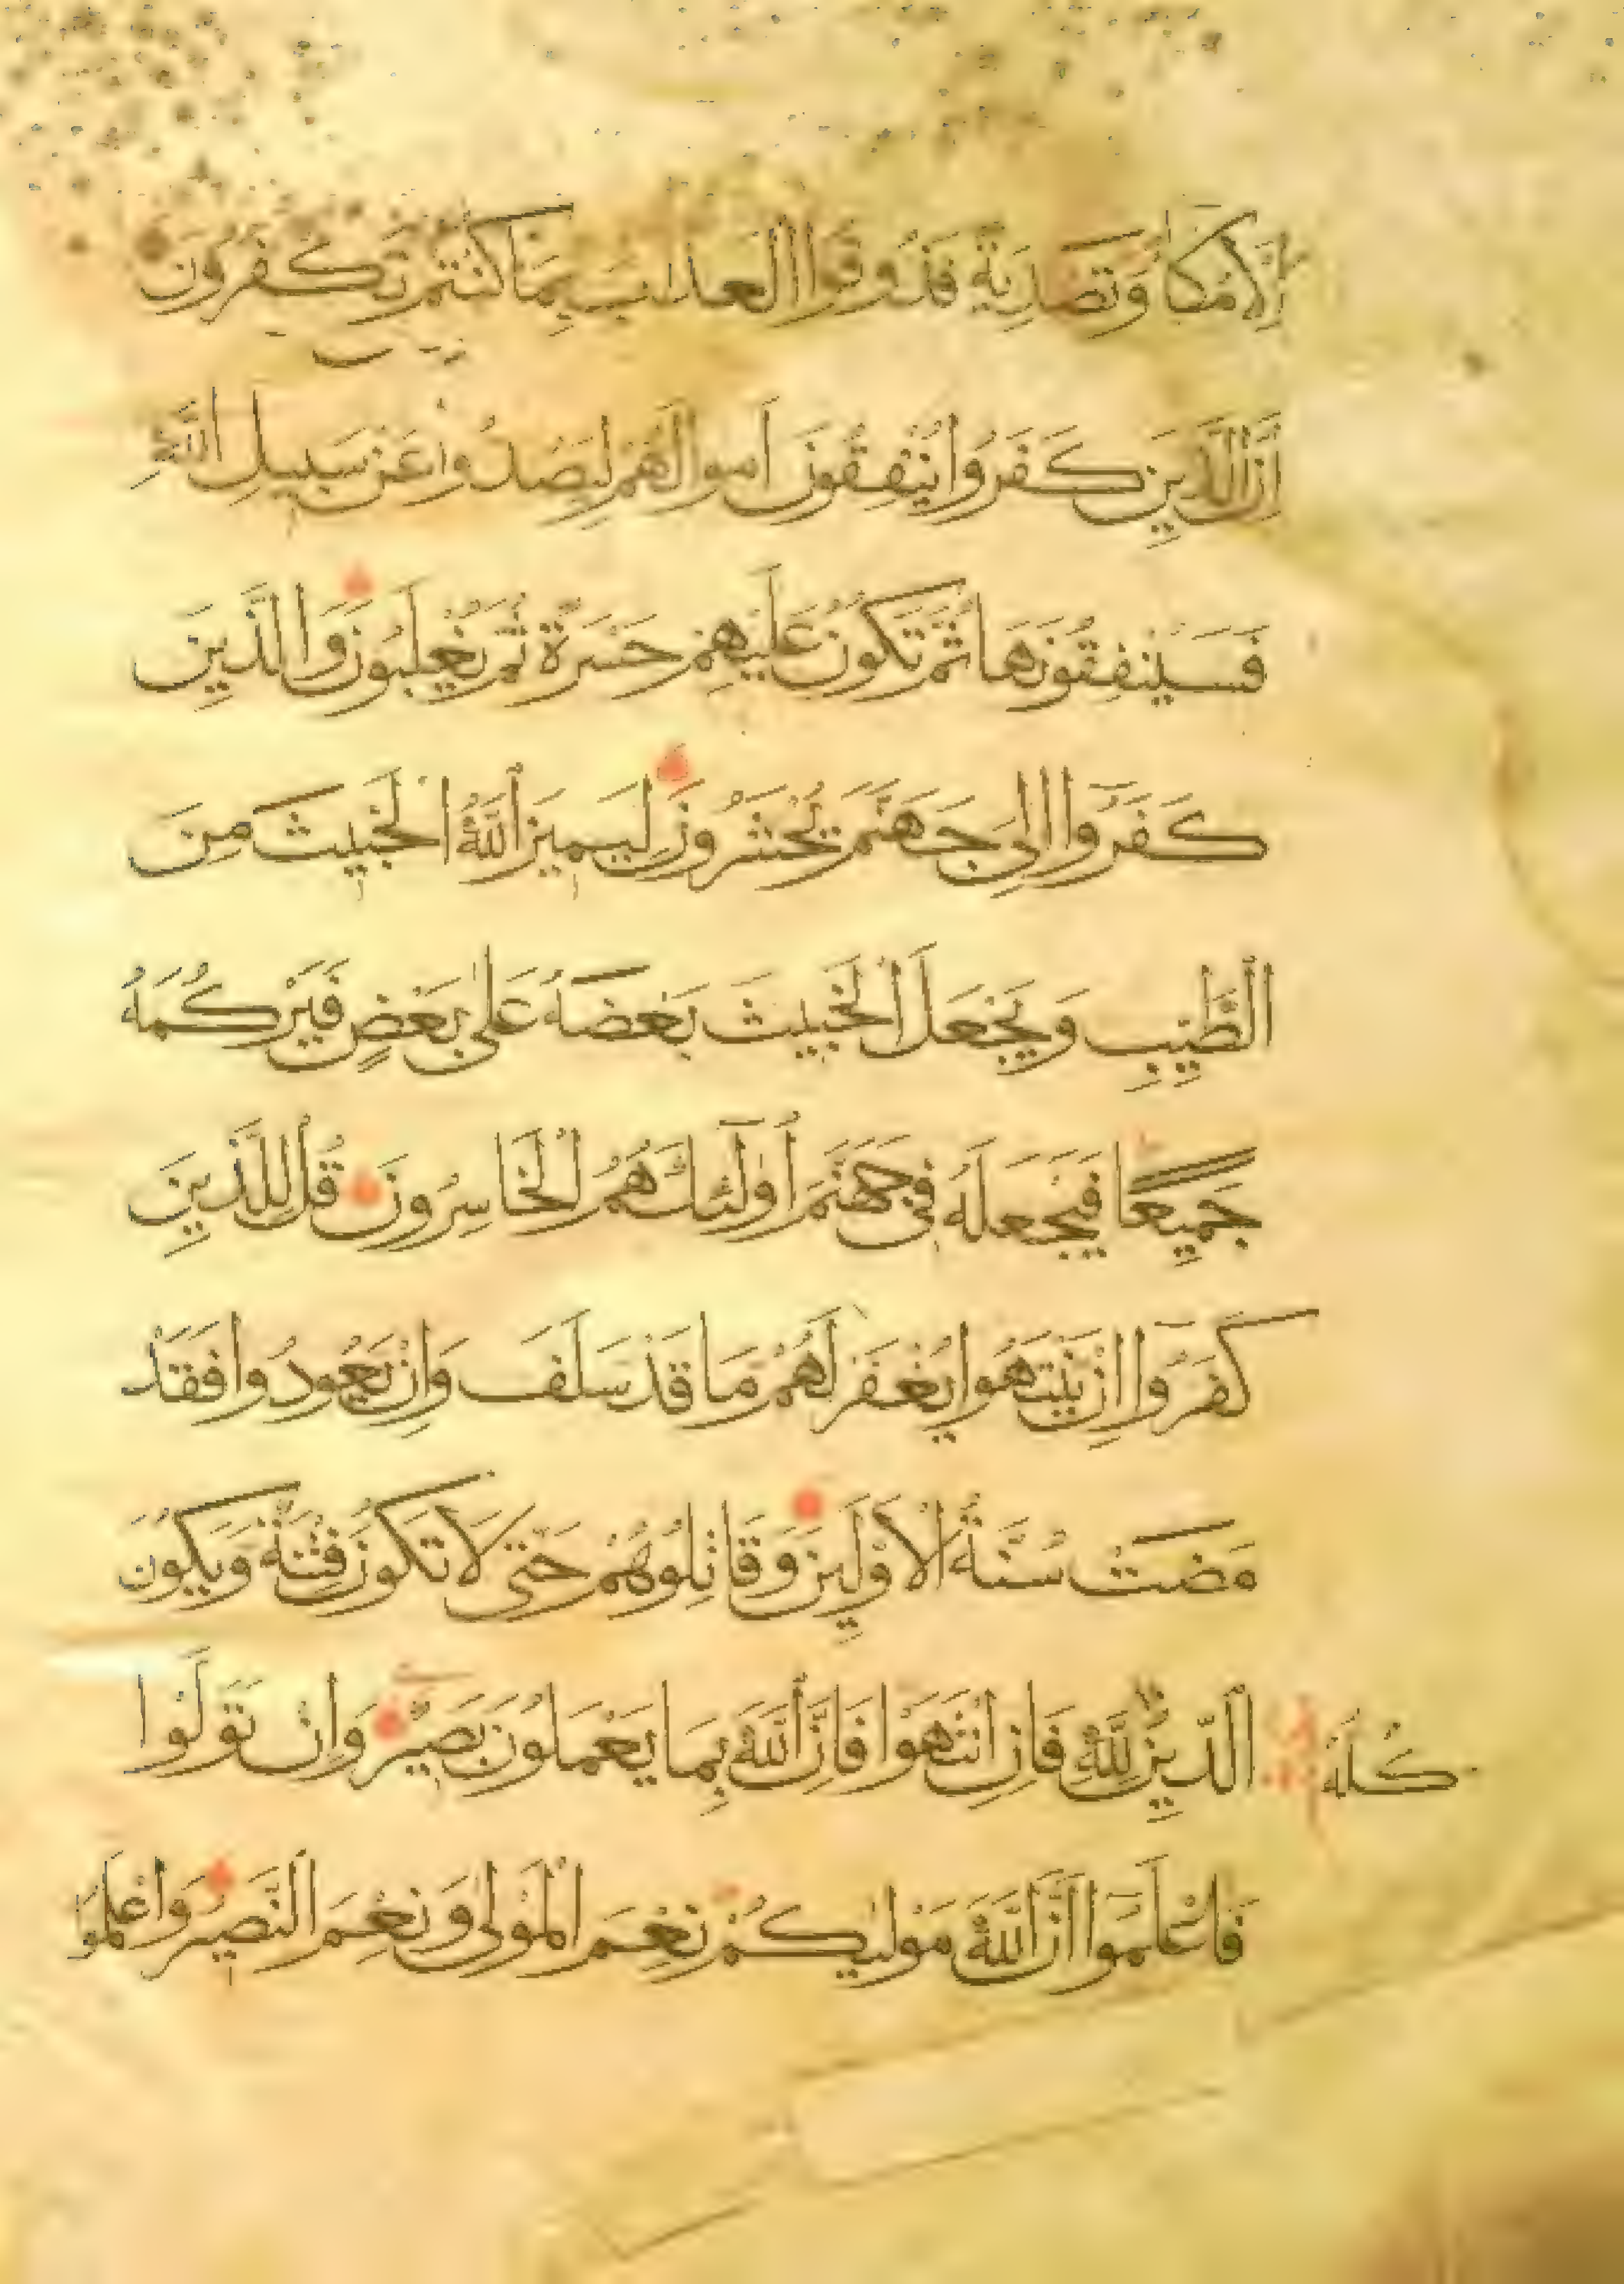 إِلَّا مُكَاءً وَتَصْدِيَةً فَذُوقُوا الْعَذَابَ بِمَا كُنْتُمْ تَكْفُرُونَ
إِنَّ الَّذِينَ كَفَرُوا يُنْفِقُونَ أَمْوَالَهُمْ لِيَصُدُّوا عَنْ سَبِيلِ اللَّهِ
فَسَيُنْفِقُونَهَا ثُمَّ تَكُونُ عَلَيْهِمْ حَسْرَةً ثُمَّ يُغْلَبُونَ وَالَّذِينَ
كَفَرُوا إِلَىٰ جَهَنَّمَ يُحْشَرُونَ لِيَمِيزَ اللَّهُ الْخَبِيثَ مِنَ
الطَّيِّبِ وَيَجْعَلَ الْخَبِيثَ بَعْضَهُ عَلَىٰ بَعْضٍ فَيَرْكُمَهُ
جَمِيعًا فَيَجْعَلَهُ فِي جَهَنَّمَ أُولَٰئِكَ هُمُ الْخَاسِرُونَ قُلْ لِلَّذِينَ
كَفَرُوا إِنْ يَنْتَهُوا يُغْفَرْ لَهُمْ مَا قَدْ سَلَفَ وَإِنْ يَعُودُوا فَقَدْ
مَضَتْ سُنَّةُ الْأَوَّلِينَ وَقَاتِلُوهُمْ حَتَّىٰ لَا تَكُونَ فِتْنَةٌ وَيَكُونَ
الدِّينُ لِلَّهِ فَإِنِ انْتَهَوْا فَإِنَّ اللَّهَ بِمَا يَعْمَلُونَ بَصِيرٌ وَإِنْ تَوَلَّوْا
كُلُّهُ
فَاعْلَمُوا أَنَّ اللَّهَ مَوْلَيٰكُمْ نِعْمَ الْمَوْلَىٰ وَنِعْمَ النَّصِيرُ وَاعْلَمُوا